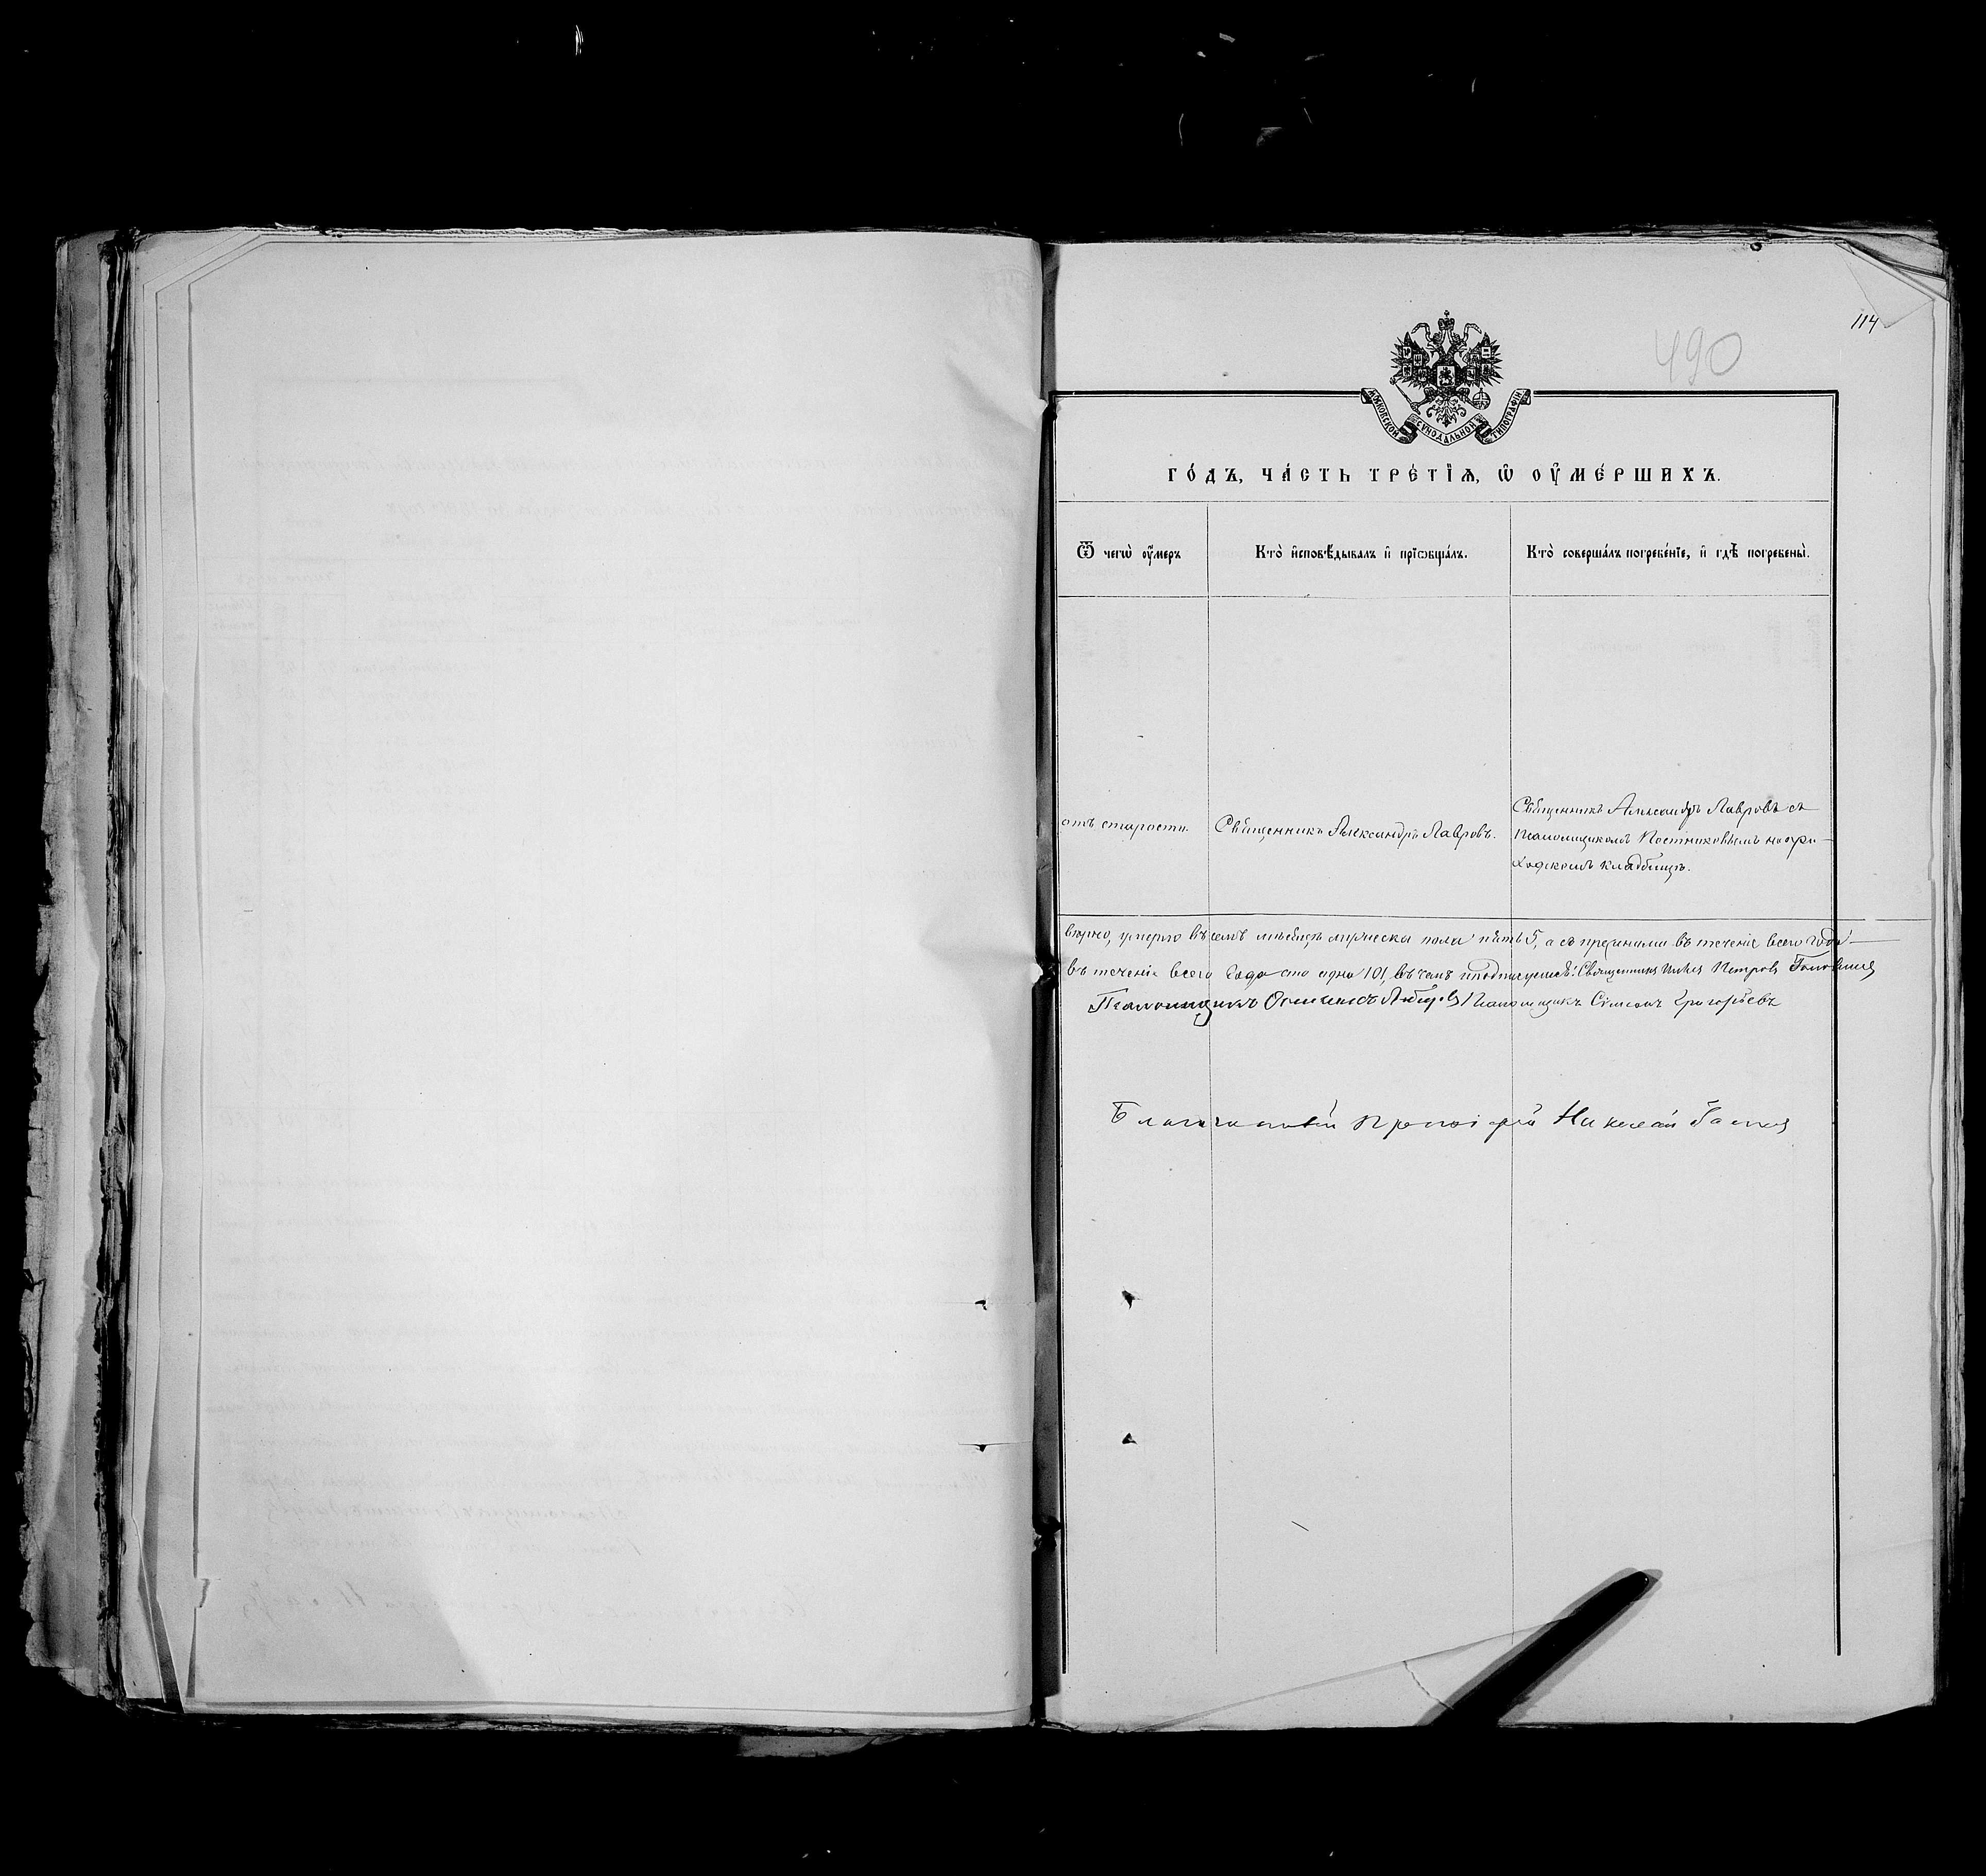 114
490
МОСКОВСКОЙ СѴНОДАЛЬНОЙ ТИПОГРАФІИ
ГО́ДЪ, ЧА́СТЬ ТРЕ́ТЇѦ, Ѡ҆ ОУ҆МЕ́РШИХЪ.
Ѿ чегѡ̀ оу҆́меръ
Кто̀ и҆сповѣ́дывалъ и҆ прїѡбща́лъ.
Кто̀ соверша́лъ погребе́нїе, и҆ гдѣ̀ погребены̀.
отъ старости.
Священникъ Александръ Лавровъ.
Священникъ Александръ Лавровъ съ
Псаломщикомъ Постниковымъ на при-
ходскомъ кладбищѣ.
умерло въ семъ мѣсяцѣ мужеска пола пять 5, а съ прежними въ теченіе всего года
въ теченіе всего года сто одна 101, въ чемъ и подписуемся: Священникъ Петровъ
Псаломщикъ Псаломщикъ Сѵмеонъ Григорьевъ
Благочинный Николай